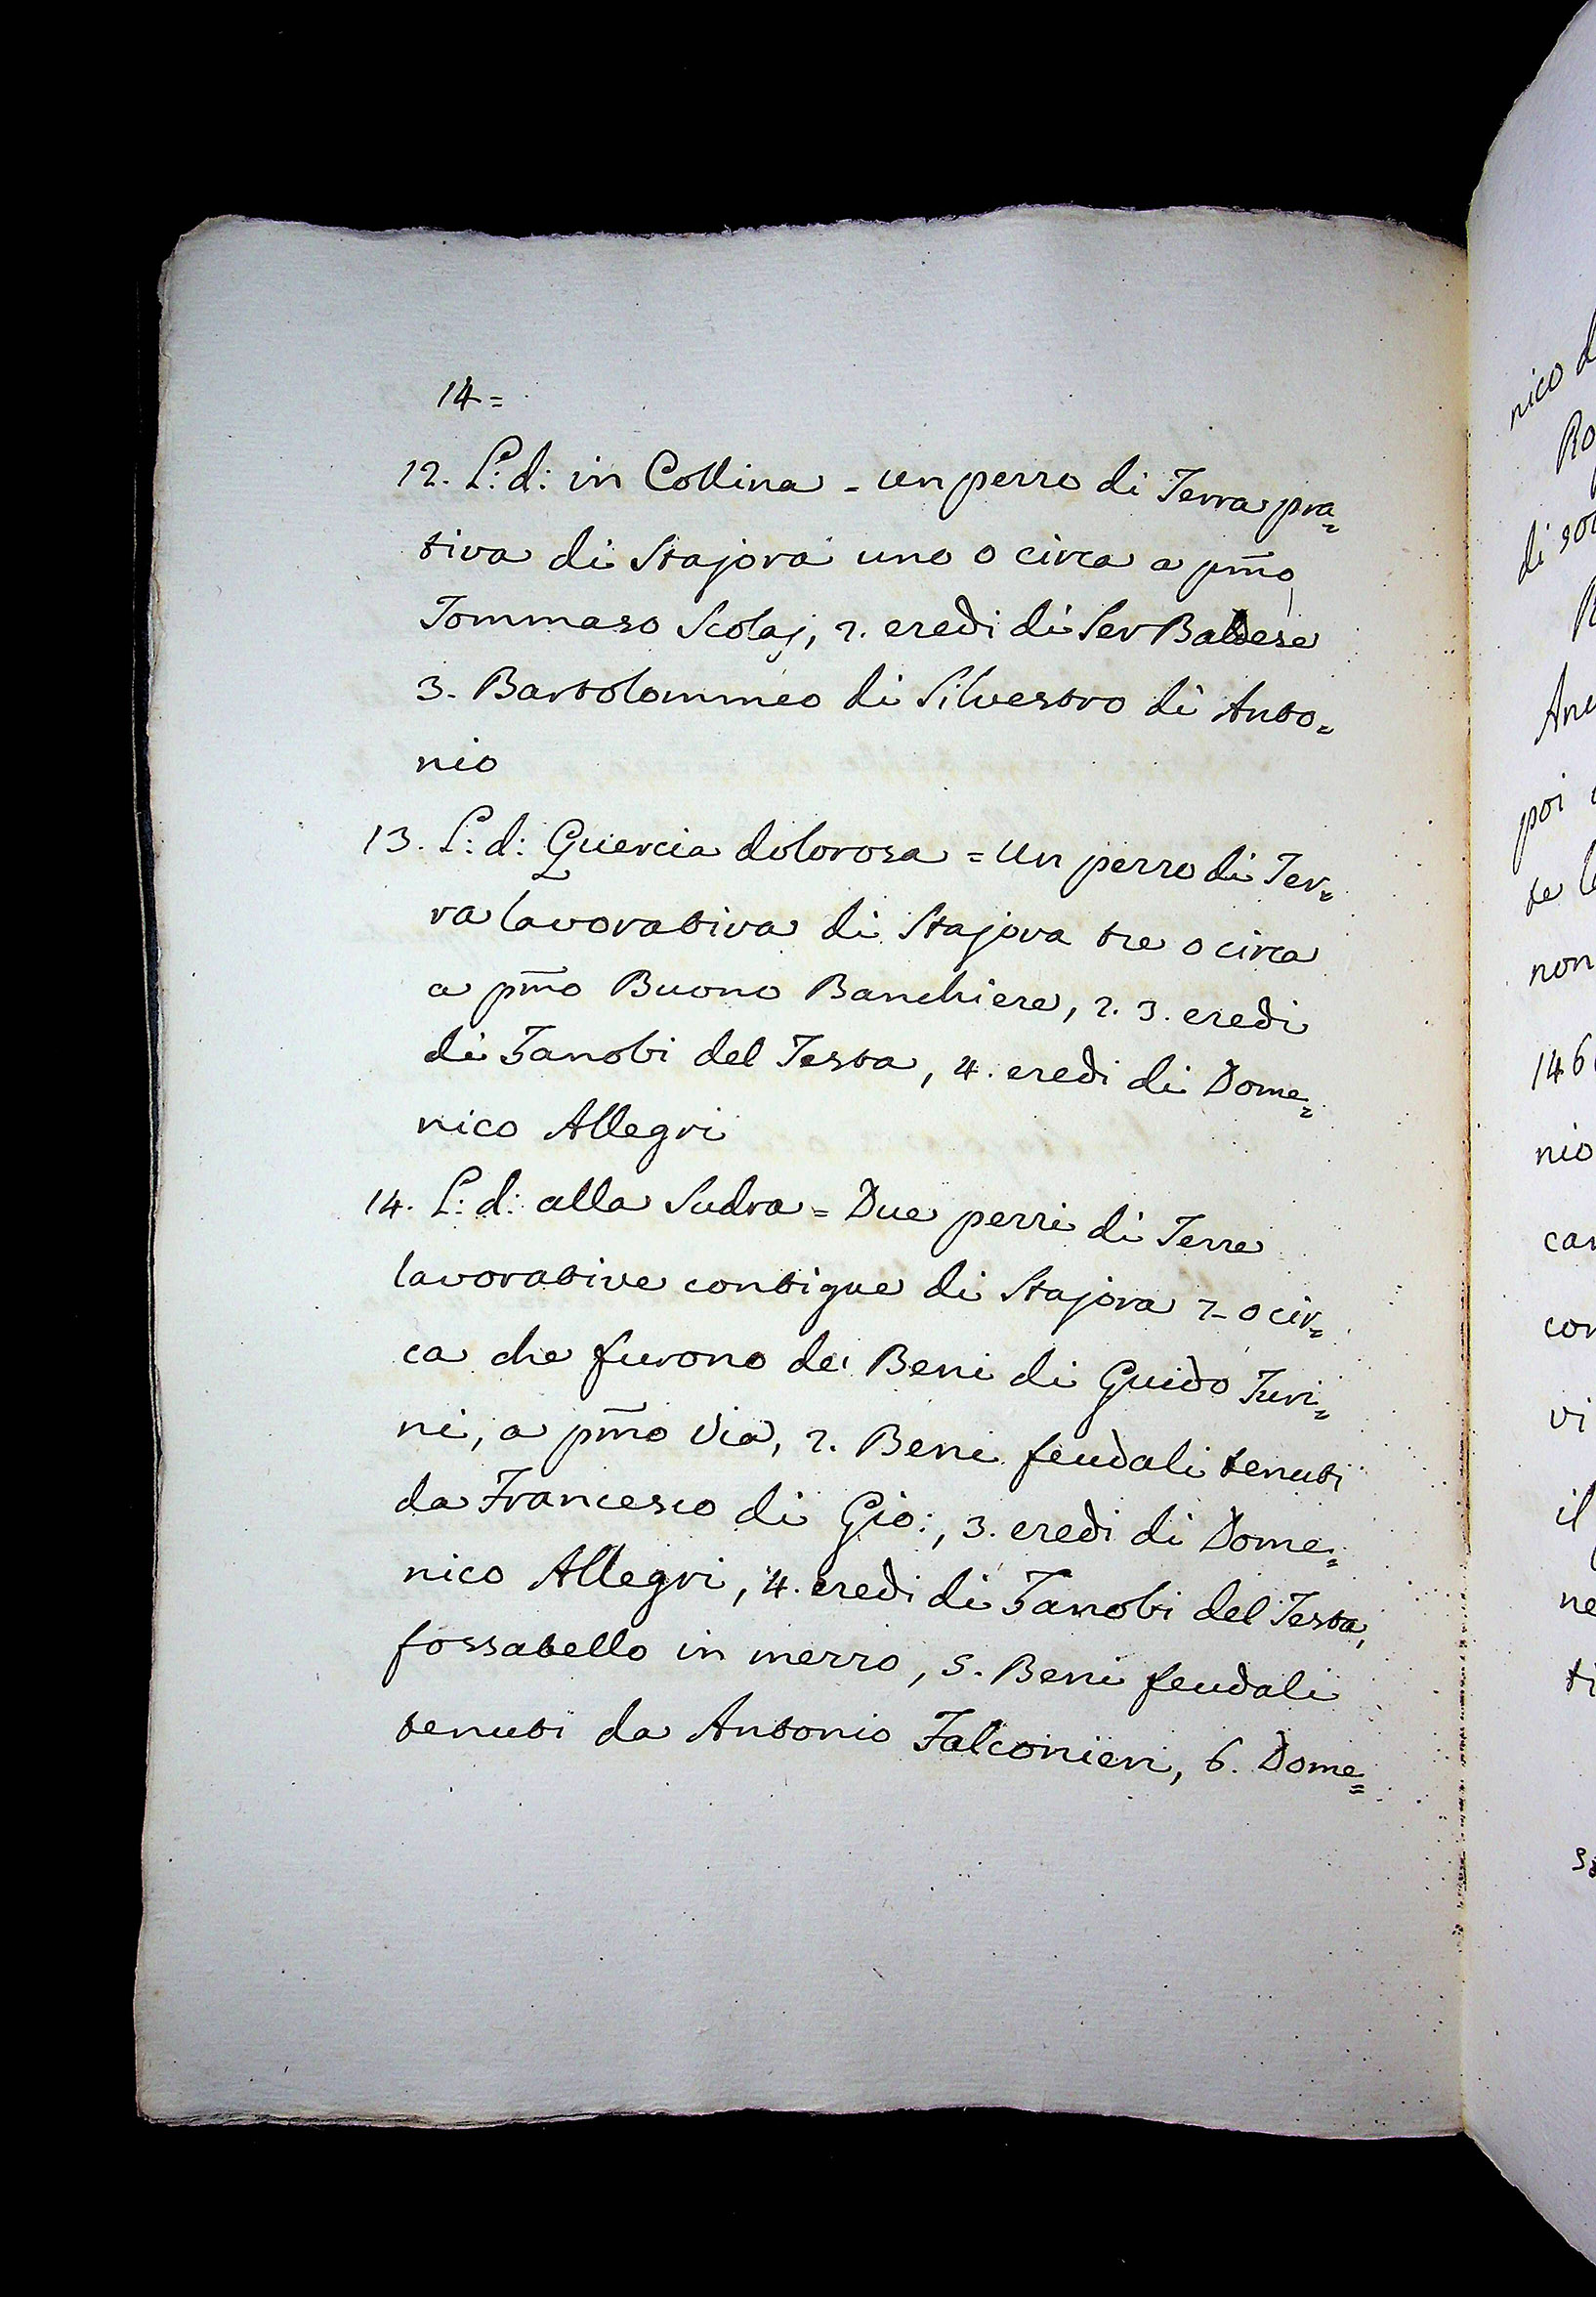 14=
12. L: d: in Collina - un pezzo di Terra pra=
tiva di Stajora uno o circa a pm̄o
Tommaso Scolaj, 2. eredi di Ser Baldese
3. Bartolommeo di Silvestro di Anto=
nio
13. L: d: Quercia dolorosa = Un pezzo di Ter=
ra lavorativa di Stajora tre o circa
a pm̄o Buono Banchiere, 2. 3. eredi
di Zanobi del Testa, 4. eredi di Dome=
nico Allegri
14. L: d: alla Sudra = Due pezzi di Terre
lavorative contigue di Stajora 2- o cir=
ca che furono dei Beni di Guido Turi=
ni, a pm̄o Via, 2. Beni feudali tenuti
da Francesco di Gio:, 3. eredi di Dome=
nico Allegri, 4. eredi di Zanobi del Testa,
fossatello in mezzo, 5. Beni feudali
tenuti da Antonio Falconieri, 6. Dome=
nico
di
poi
te
non
nio
vi
il